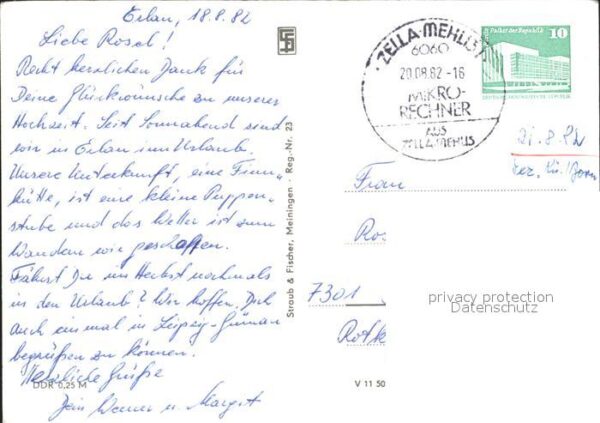 Erlau, 18.8.82
Liebe Rosel!
Recht herzlichen Dank für
Deine Glückwünsche zu unserer
Hochzeit. Seit Sonnabend sind
wir in Erlau im Urlaub.
Unsere Unterkunft, eine Finn-
hütte, ist eine kleine Puppen-
stube und das Wetter ist zum
Wandern wie geschaffen.
Fährst Du im Herbst nochmals
in den Urlaub? Wir hoffen, Dich
auch einmal in Leipzig-Grünau
begrüßen zu können.
Herzliche Grüße
DDR 0,25 M
Dein Werner u. Margot
Straub & Fischer, Meiningen - Reg.-Nr. 23
V 11 50
ZELLA-MEHLIS 1
6060
20.08.82-16
MIKRO-
RECHNER
AUS
ZELLA-MEHLIS
Palast der Republik
10
DEUTSCHE DEMOKRATISCHE REPUBLIK
21.8.82
Frau
Ro.
7301
privacy protection
Datenschutz